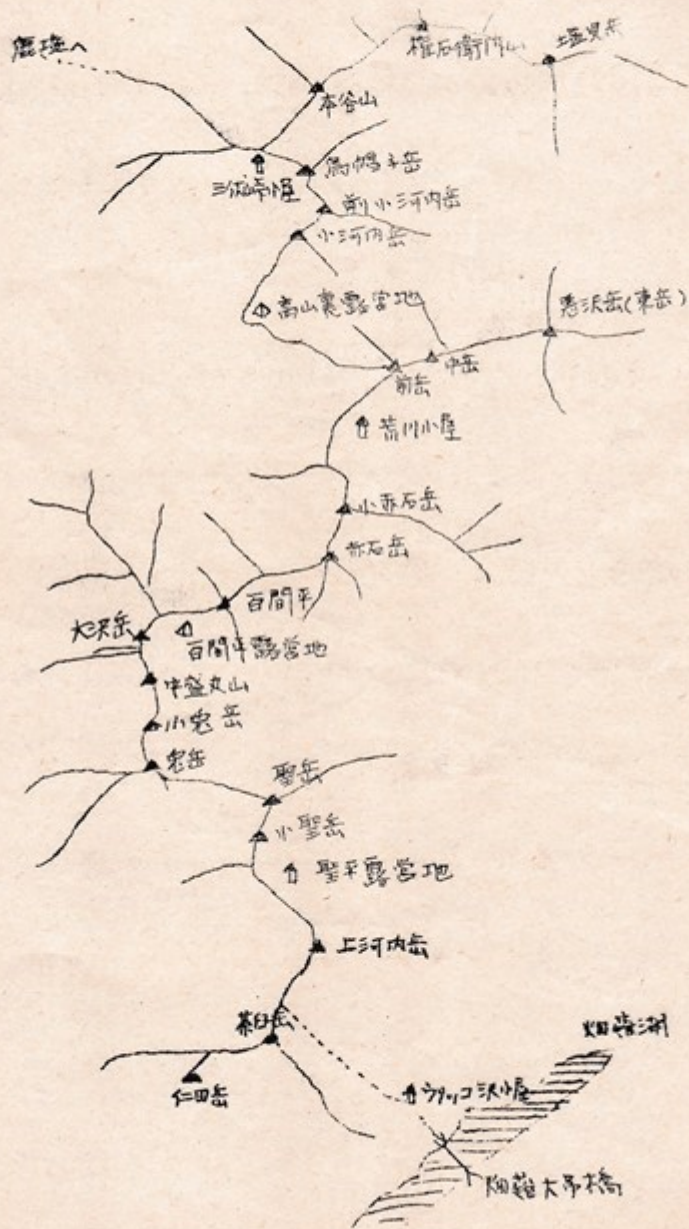 鹿塩へ
権右衛門山
塩見岳
本谷山
三伏峠小屋
烏帽子岳
前小河内岳
小河内岳
高山裏露営地
悪沢岳(東岳)
中岳
前岳
荒川小屋
小赤石岳
赤石岳
百間平
大沢岳
百間平露営地
中盛丸山
小兎岳
兎岳
聖岳
小聖岳
聖平露営地
上河内岳
茶臼岳
仁田岳
畑薙湖
ウソッコ沢小屋
畑薙大吊橋